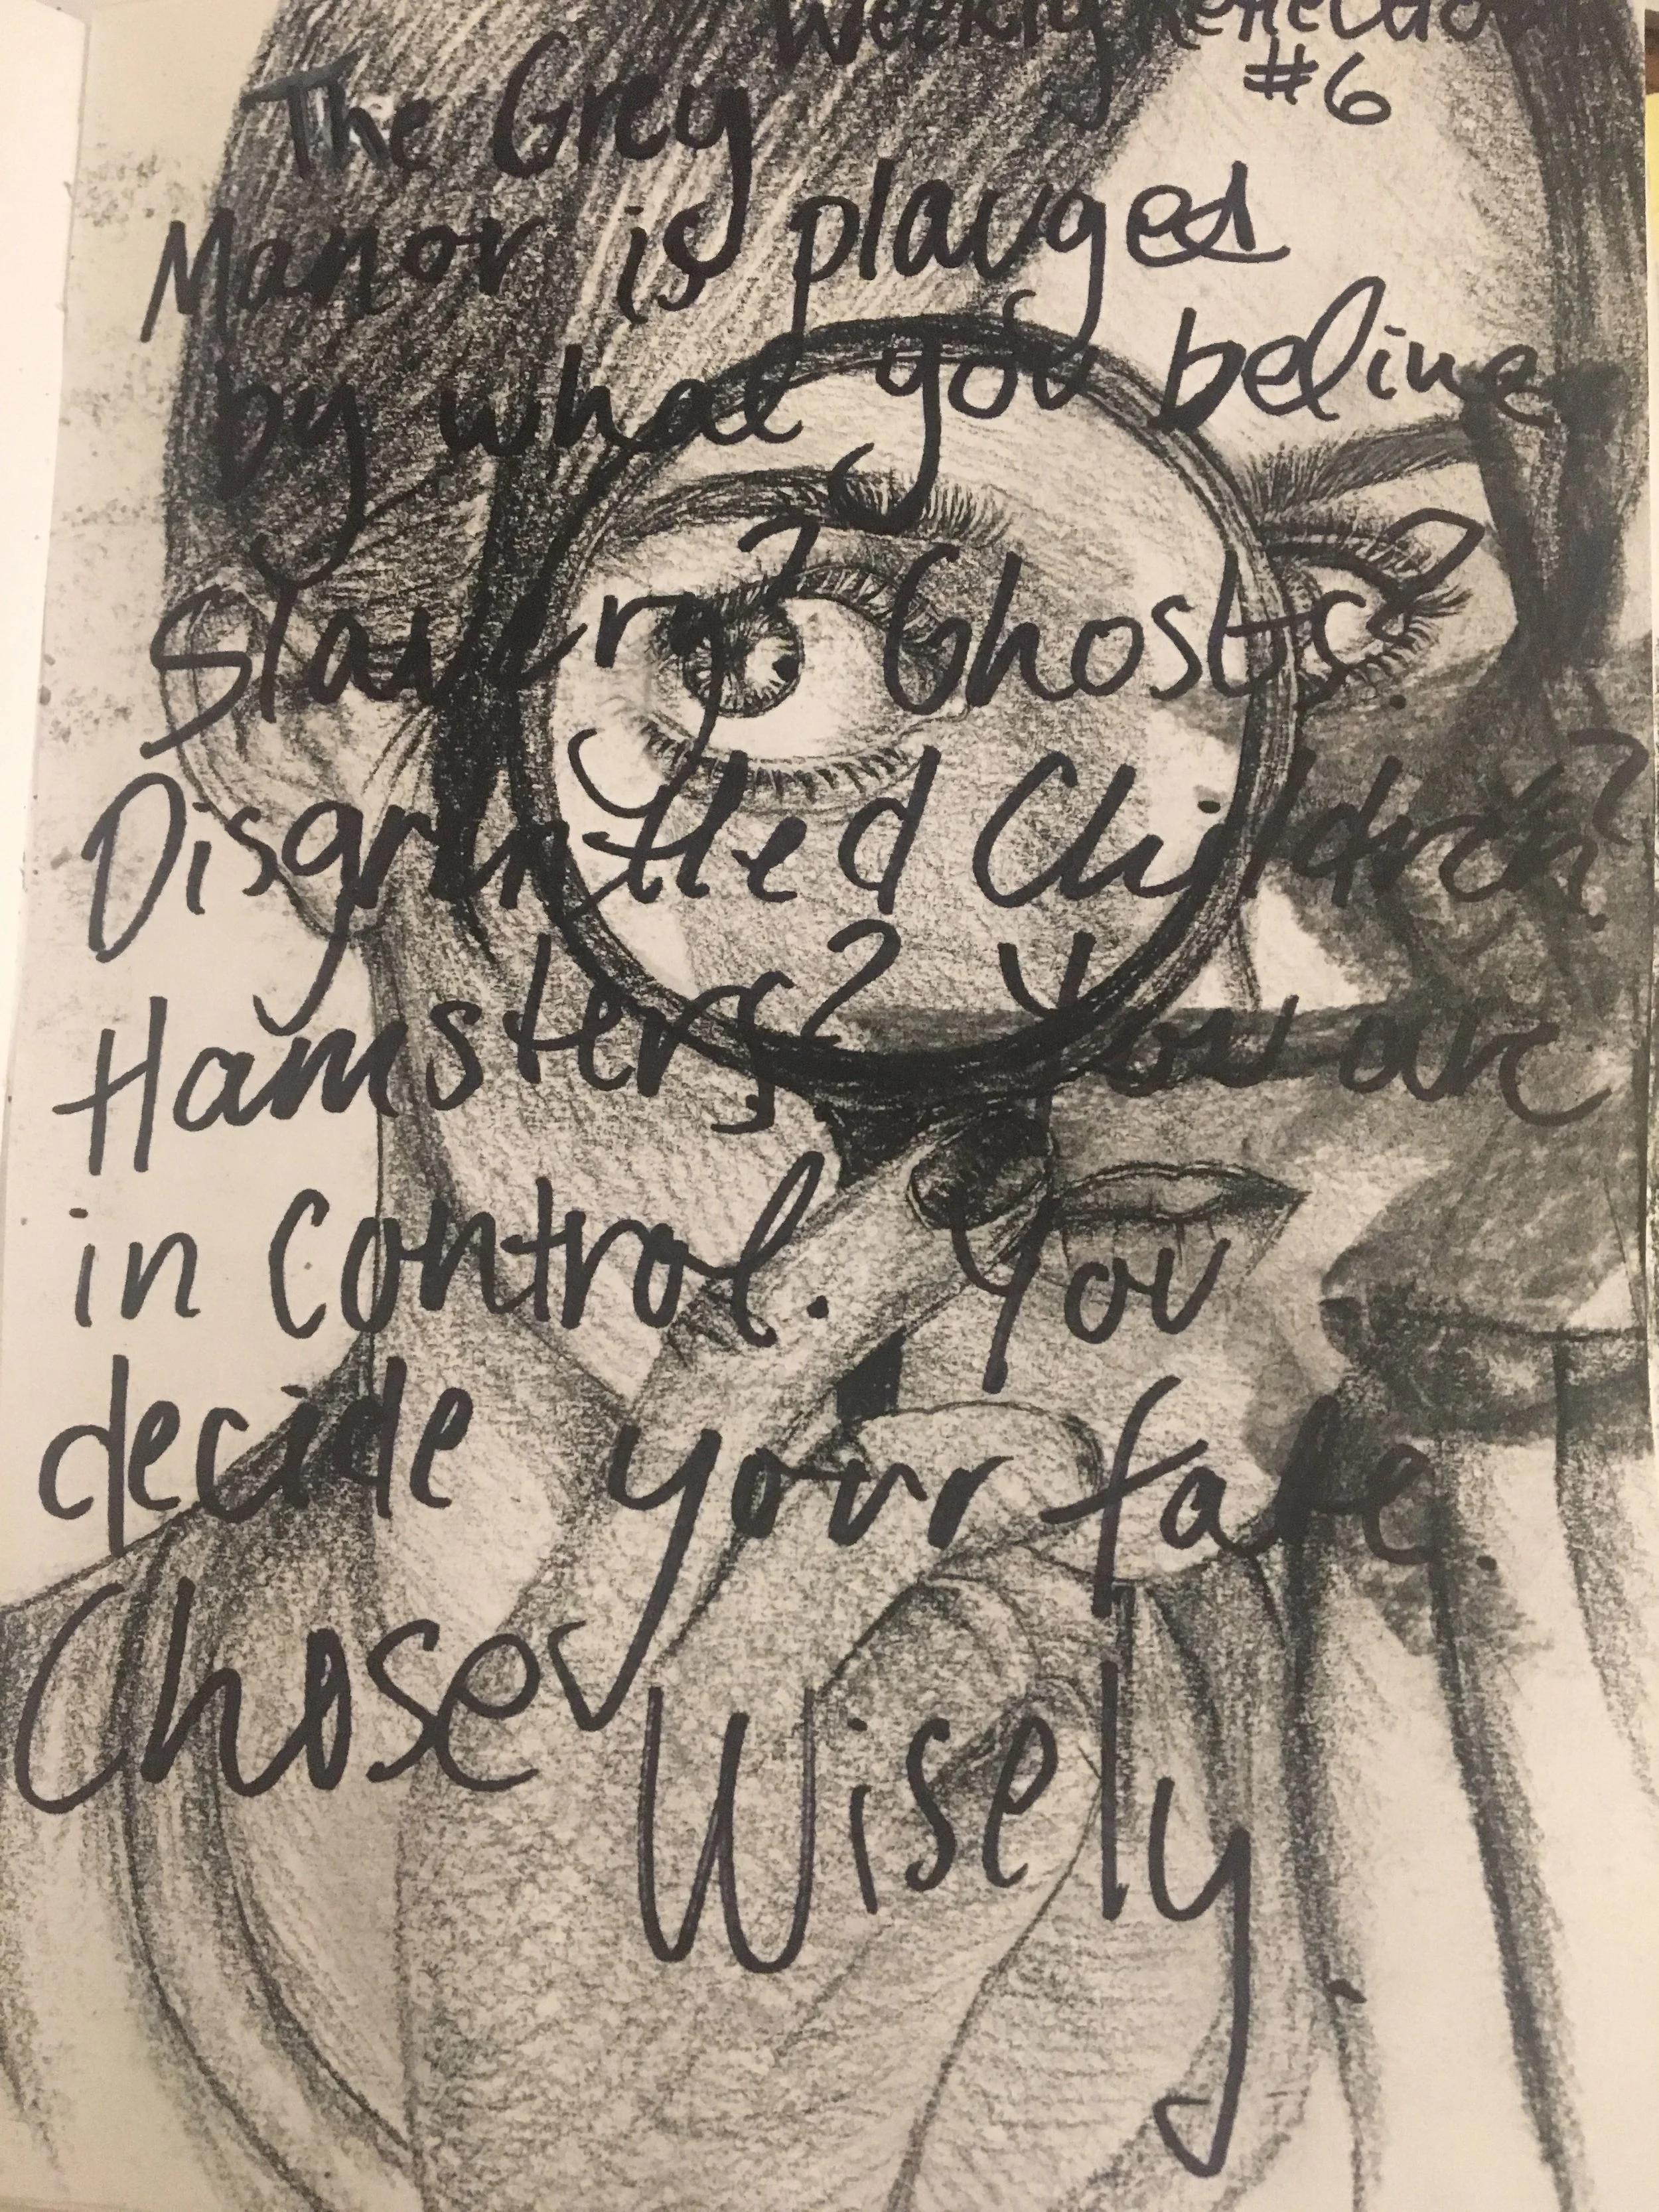 Weekly Reflection
#6
The Grey
Manor is plauged
by what you belive
Slavery? Ghosts?
Disgruntled Children?
Hamsters? You are
in Control. You
decide your fate.
Chose
Wisely